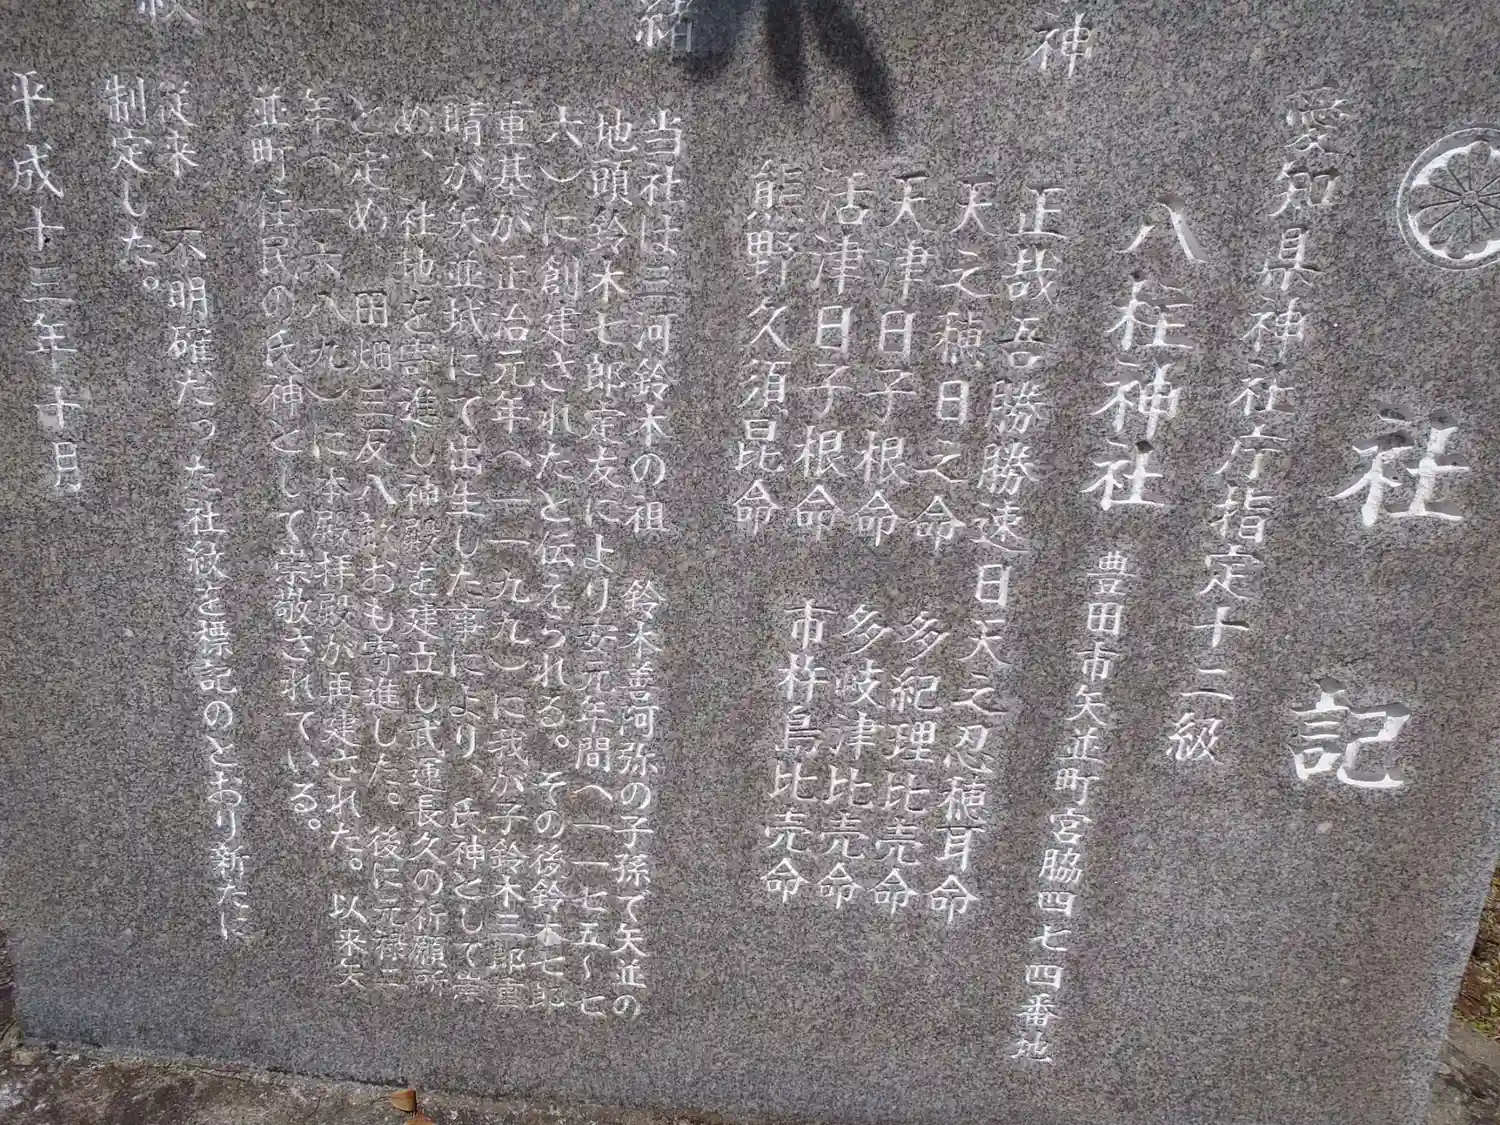 社記
愛知県神社庁指定十二級
八柱神社 豊田市矢並町宮脇四七四番地
神
正哉吾勝勝速日天之忍穂耳命
天之穂日之命 多紀理比売命
天津日子根命 多岐津比売命
活津日子根命 市杵島比売命
熊野久須毘命
緒
当社は三河鈴木の祖 鈴木善阿弥の子孫で矢並の
地頭鈴木七郎定友により安元年間へ一一七五〜七
六）に創建されたと伝えられる。その後鈴木七郎
重基が正治元年へ一一九九）に我が子鈴木三郎重
晴が矢並城にて出生した事により、氏神として崇
め、社地を寄進し神殿を建立し武運長久の祈願所
と定め 田畑三反八畝おも寄進した。後に元禄二
年へ一六八九）に本殿拝殿が再建された。以来矢
並町住民の氏神として崇敬されている。
紋
従来 不明確だった社紋を標記のとおり新たに
制定した。
平成十三年十月